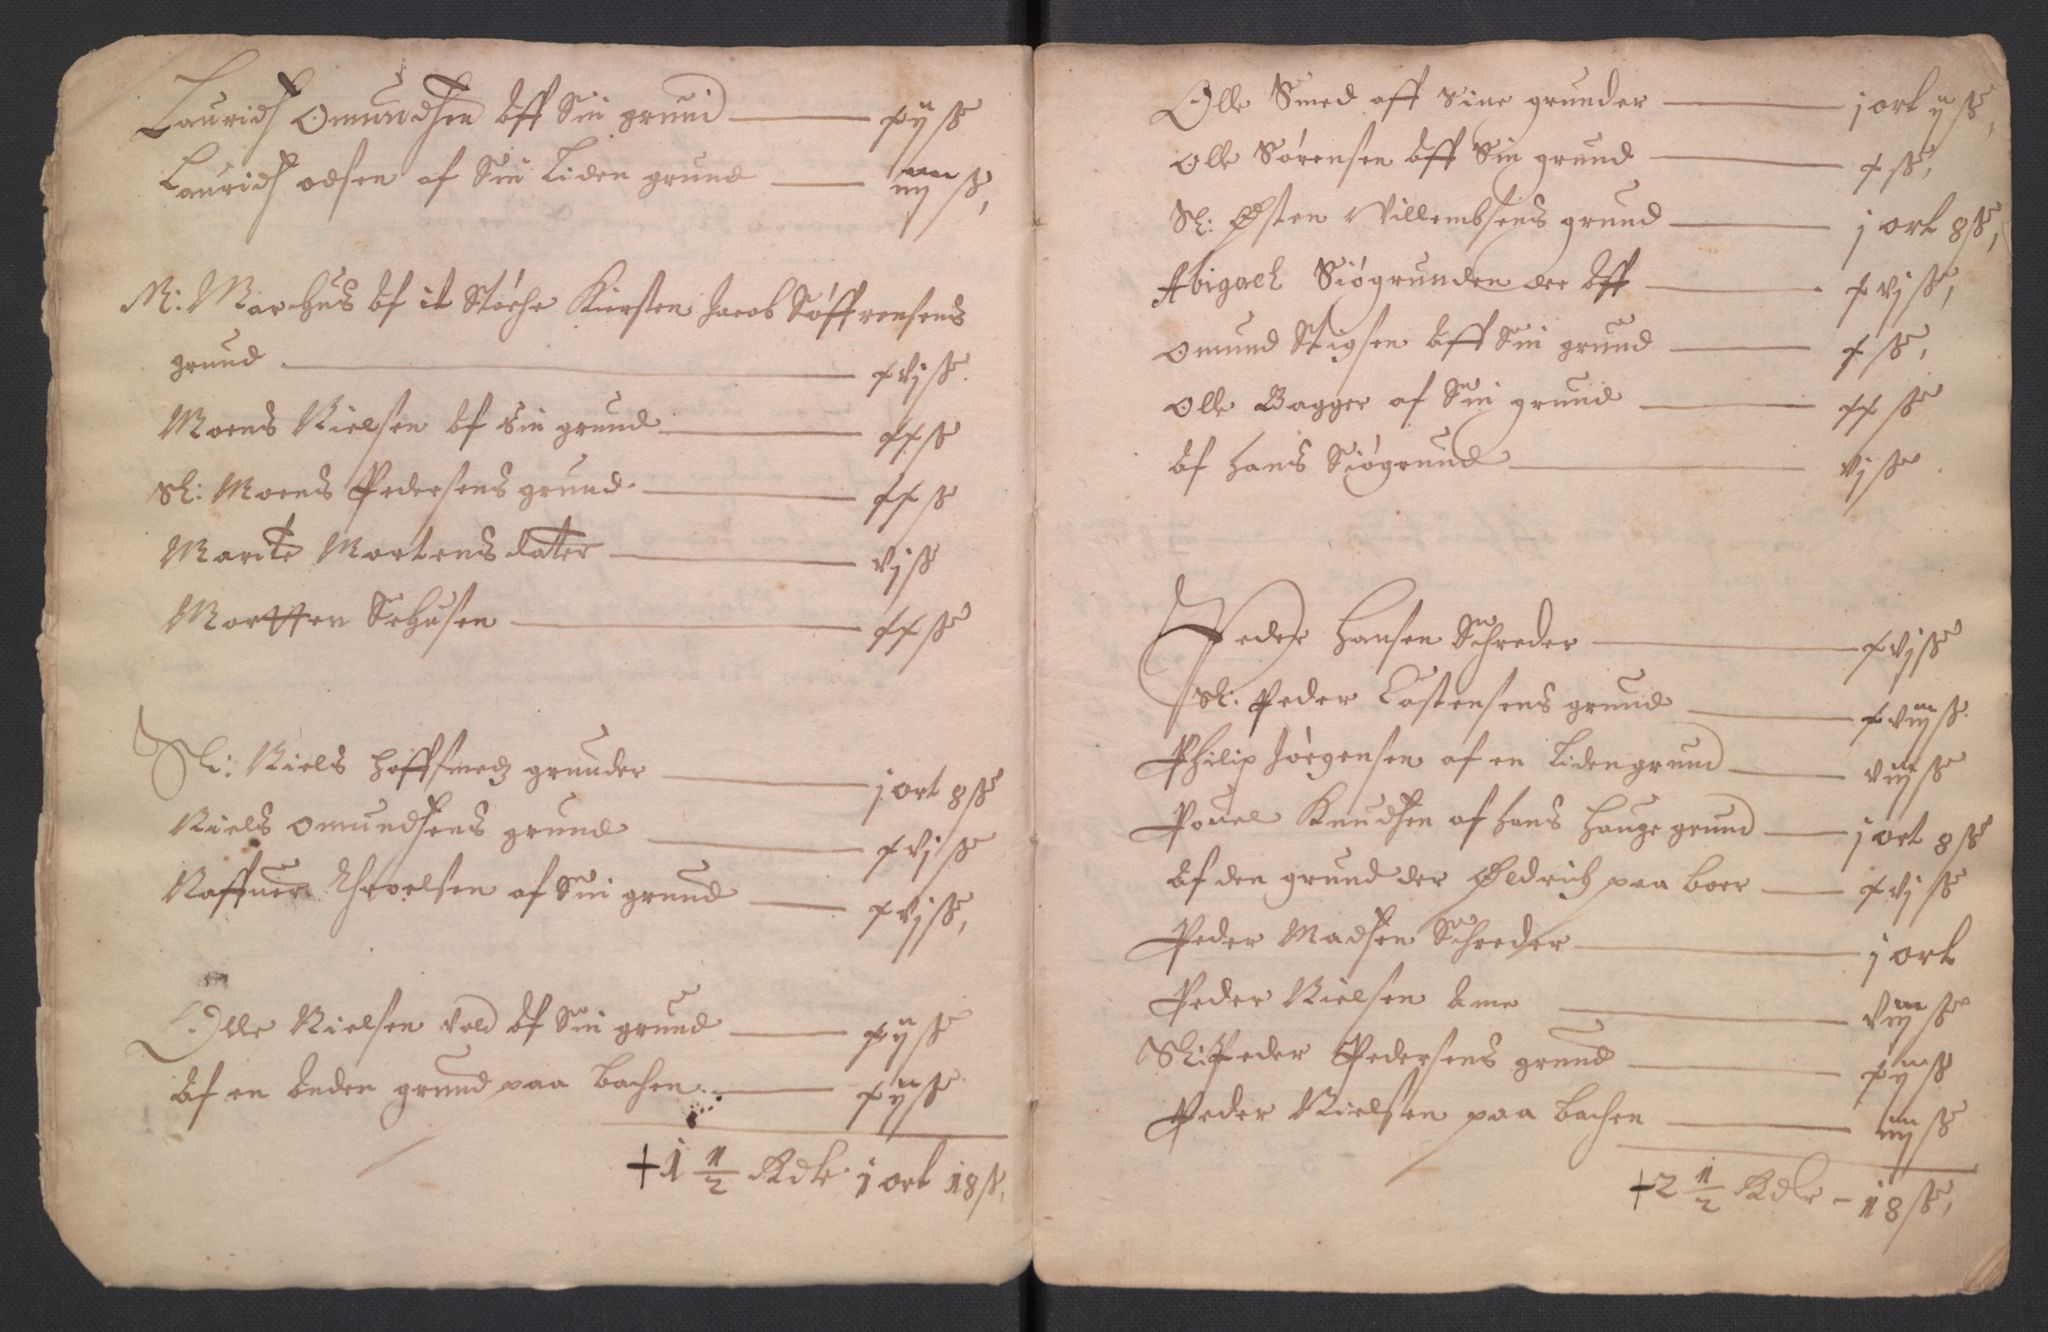 Lauridß Omundßen aff Sin grund — xij ß
Lauridß odsen af Sin Liden grund — iiij ß,
M: Marchus af it Støche Kirsten Jacob Søffrensens
grund — xvj ß.
Moens Nielsen af sin grund — xx ß
Sl: Moens Pedersens grund — xx ß
Marite Mortens dater — vj ß
Mortten Sehusen — xx ß
Sl: Niels hoffsmedz grunder — j ort 8 ß
Niels omundßens grund — xvj ß
Raffuer Throelsen af Sin grund — xvj ß,
Olle Nielsen vold af Sin grund — xij ß
af en anden grund paa bachen — xij ß
+1 1/2 Rdlr j ort 18 ß,
Olle Smed aff sine grunder — j ort ij ß,
Olle Sørensen aff Sin grund — x ß,
Sl: Østen Villembsens grund — j ort 8 ß,
Abigael Siøgrunden der aff — xvj ß,
Omund Stigsen aff Sin grund — x ß,
Olle Bagger af Sin grund — xx ß
af hans Siøgrund — vj ß
Peder Hansen Schreder — xvj ß
Sl: Peder Castensens grund — xviij ß.
Philip Jørgensen af en Liden grund — viij ß
Pouel Knudßen af hans Hauge grund — j ort 8 ß
af den grund der Øldrich paa boer — xvj ß
Peder Madßen Schreder — j ort
Peder Nielsen Ame — viij ß
Sl: Peder Pedersens grund — xij ß
Peder Nielsen paa bachen — iiij ß
+2 1/2 Rdlr – 18 ß,